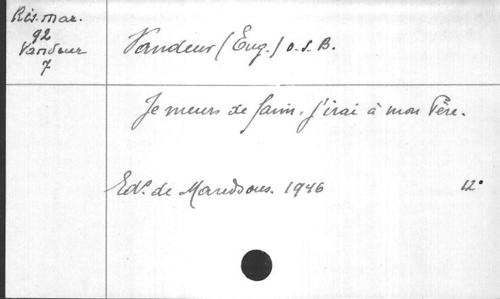 Rés. mar.
92
Vandeur
7
Vandeur (Eug.) O.S.B.
Je meurs de faim, j'irai à mon Père.
Edns de Maredsous. 1946 12°